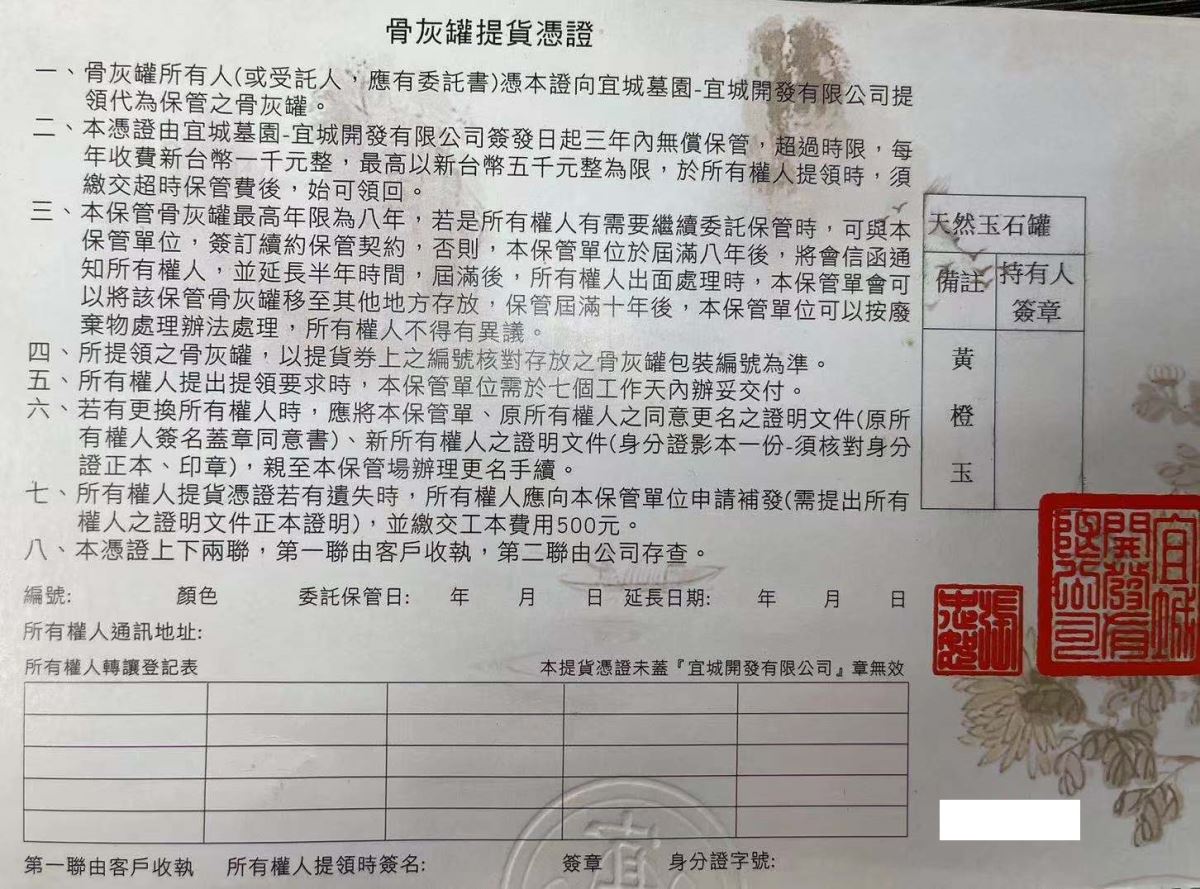 骨灰罐提貨憑證
一、骨灰罐所有人(或受託人，應有委託書)憑本證向宜城墓園-宜城開發有限公司提
領代為保管之骨灰罐。
二、本憑證由宜城墓園-宜城開發有限公司簽發日起三年內無償保管，超過時限，每
年收費新台幣一千元整，最高以新台幣五千元整為限，於所有權人提領時，須
繳交超時保管費後，始可領回。
三、本保管骨灰罐最高年限為八年，若是所有權人有需要繼續委託保管時，可與本
保管單位，簽訂續約保管契約，否則，本保管單位於屆滿八年後，將會信函通
知所有權人，並延長半年時間，屆滿後，所有權人出面處理時，本保管單會可
以將該保管骨灰罐移至其他地方存放，保管屆滿十年後，本保管單位可以按廢
棄物處理辦法處理，所有權人不得有異議。
四、所提領之骨灰罐，以提貨券上之編號核對存放之骨灰罐包裝編號為準。
五、所有權人提出提領要求時，本保管單位需於七個工作天內辦妥交付。
六、若有更換所有權人時，應將本保管單、原所有權人之同意更名之證明文件(原所
有權人簽名蓋章同意書)、新所有權人之證明文件(身分證影本一份-須核對身分
證正本、印章)，親至本保管場辦理更名手續。
七、所有權人提貨憑證若有遺失時，所有權人應向本保管單位申請補發(需提出所有
權人之證明文件正本證明)，並繳交工本費用500元。
八、本憑證上下兩聯，第一聯由客戶收執，第二聯由公司存查。
天然玉石罐
備註 持有人
簽章
黃
橙
玉
宜城
開發有
限公司
編號: 顏色 委託保管日: 年 月 日 延長日期: 年 月 日
所有權人通訊地址:
所有權人轉讓登記表 本提貨憑證未蓋『宜城開發有限公司』章無效
宜
第一聯由客戶收執 所有權人提領時簽名: 簽章 身分證字號: